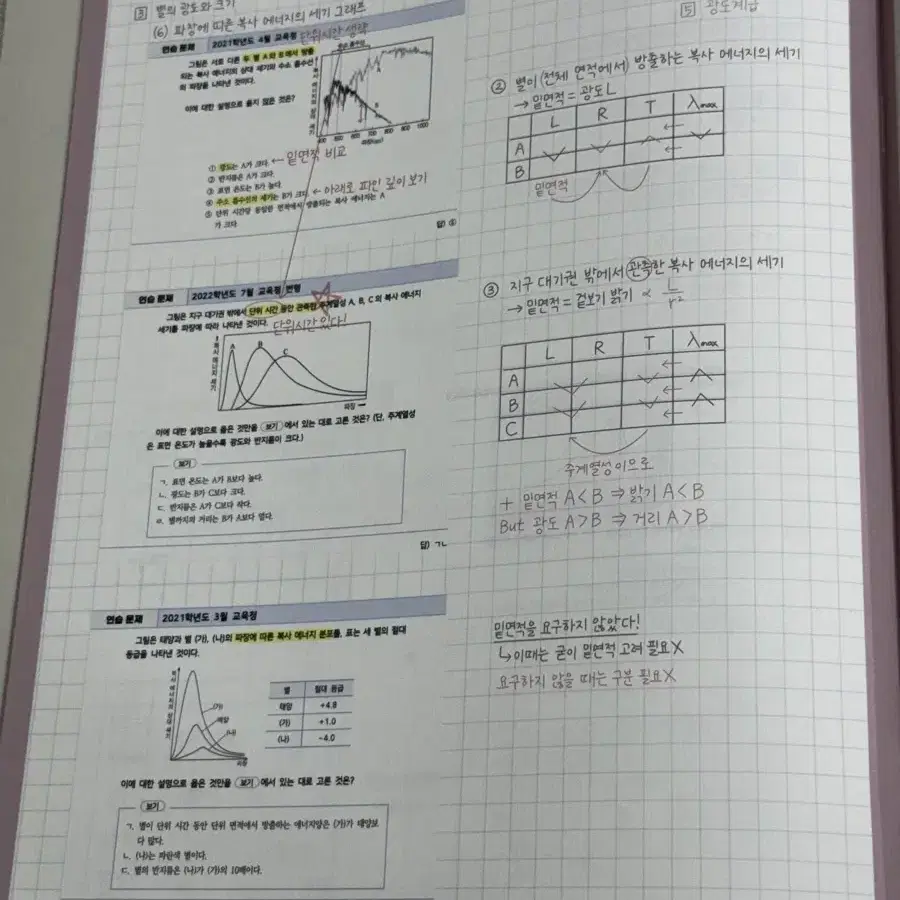 3 별의 광도와 크기
(6) 파장에 따른 복사 에너지의 세기 그래프
연습 문제 2021학년도 4월 교육청
단위시간 생략
그림은 서로 다른 두 별 A와 B에서 방출
되는 복사 에너지의 상대 세기와 수소 흡수선
의 파장을 나타낸 것이다.
이에 대한 설명으로 옳지 않은 것은?
A
B
① 광도는 A가 크다. ← 밑면적 비교
② 반지름은 A가 크다.
③ 표면 온도는 B가 높다.
④ 수소 흡수선의 세기는 B가 크다. ← 아래로 파인 깊이 보기
⑤ 단위 시간당 동일한 면적에서 방출되는 복사 에너지는 A
가 크다
답) ⑤
연습 문제 2022학년도 7월 교육청 변형
그림은 지구 대기권 밖에서 단위 시간 동안 관측한 주계열성 A, B, C의 복사 에너지
세기를 파장에 따라 나타낸 것이다.
단위시간 있다!
복사 에너지 세기
A B C
파장
이에 대한 설명으로 옳은 것만을 보기 에서 있는 대로 고른 것은? (단, 주계열성
은 표면 온도가 높을수록 광도와 반지름이 크다.)
보기
ㄱ. 표면 온도는 A가 B보다 높다.
ㄴ. 광도는 B가 C보다 크다.
ㄷ. 반지름은 A가 C보다 작다.
ㄹ. 별까지의 거리는 B가 A보다 멀다.
답) ㄱㄴ
연습 문제 2021학년도 3월 교육청
그림은 태양과 별 (가), (나)의 파장에 따른 복사 에너지 분포를, 표는 세 별의 절대
등급을 나타낸 것이다.
복사 에너지의 상대 세기
(가)
태양
(나)
파장
별 절대 등급
태양 +4.8
(가) +1.0
(나) -4.0
이에 대한 설명으로 옳은 것만을 보기 에서 있는 대로 고른 것은?
보기
ㄱ. 별이 단위 시간 동안 단위 면적에서 방출하는 에너지양은 (가)가 태양보
다 많다.
ㄴ. (나)는 파란색 별이다.
ㄷ. 별의 반지름은 (나)가 (가)의 10배이다.
5 광도계급
② 별이 (전체 면적에서) 방출하는 복사 에너지의 세기
→ 밑면적 = 광도 L
L R T λmax
A
B
밑면적
③ 지구 대기권 밖에서 관측한 복사 에너지의 세기
→ 밑면적 = 겉보기 밝기 ∝ L/r²
L R T λmax
A
B
C
주계열성이므로
+ 밑면적 A<B ⇒ 밝기 A<B
But 광도 A>B ⇒ 거리 A>B
밑면적을 요구하지 않았다!
↳ 이때는 굳이 밑면적 고려 필요X
요구하지 않을 때는 구분 필요X